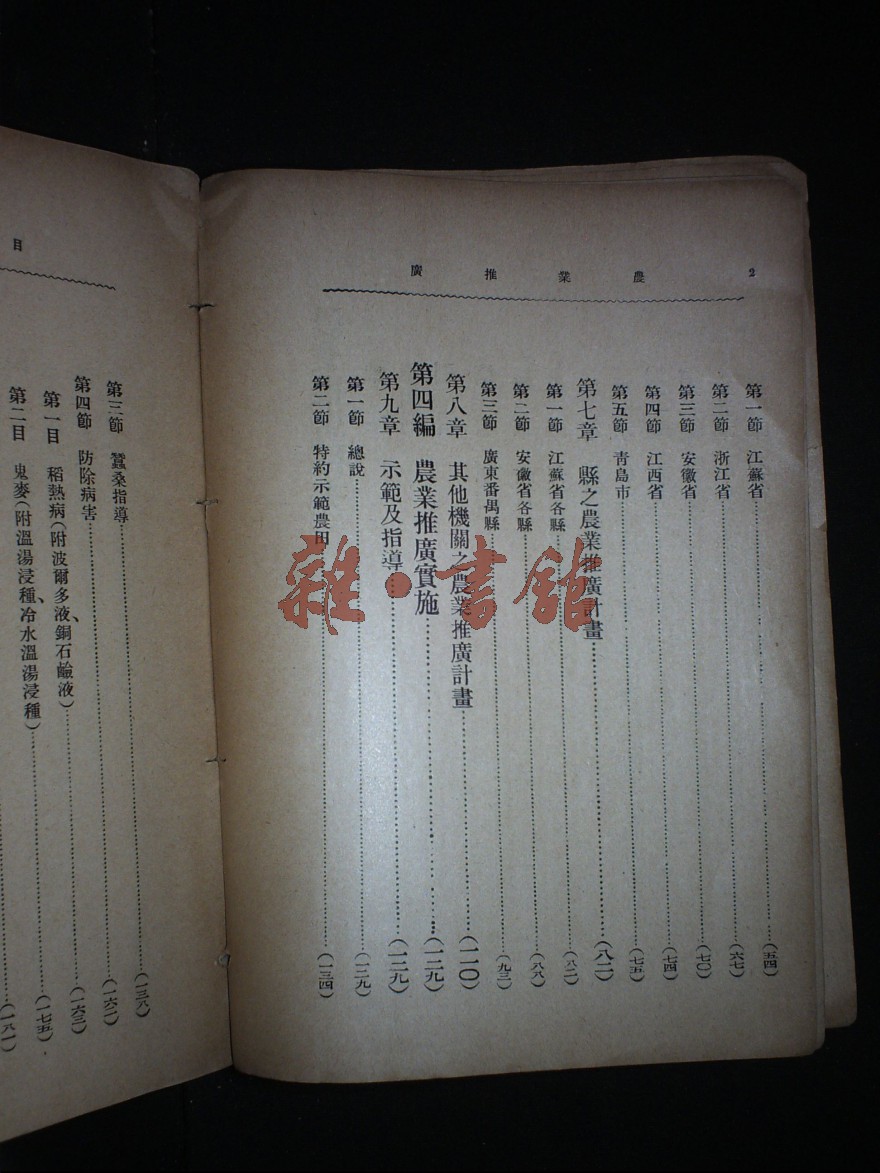 2 農業推廣
第一節 江蘇省……(五四)
第二節 浙江省……(六七)
第三節 安徽省……(七〇)
第四節 江西省……(七四)
第五節 靑島市……(七五)
第七章 縣之農業推廣計畫……(八二)
第一節 江蘇省各縣……(八二)
第二節 安徽省各縣……(八八)
第三節 廣東番禺縣……(九三)
第八章 其他機關之農業推廣計畫……(一一〇)
第四編 農業推廣實施……(一二九)
第九章 示範及指導……(一二九)
第一節 總說……(一二九)
第二節 特約示範農田……(一三四)
目
第三節 蠶桑指導……(一三八)
第四節 防除病害……(一六二)
第一目 稻熱病(附波爾多液、銅石鹼液)……(一六三)
第二目 鬼麥(附溫湯浸種、冷水溫湯浸種)……(一七五)
(一八一)
雜·書館